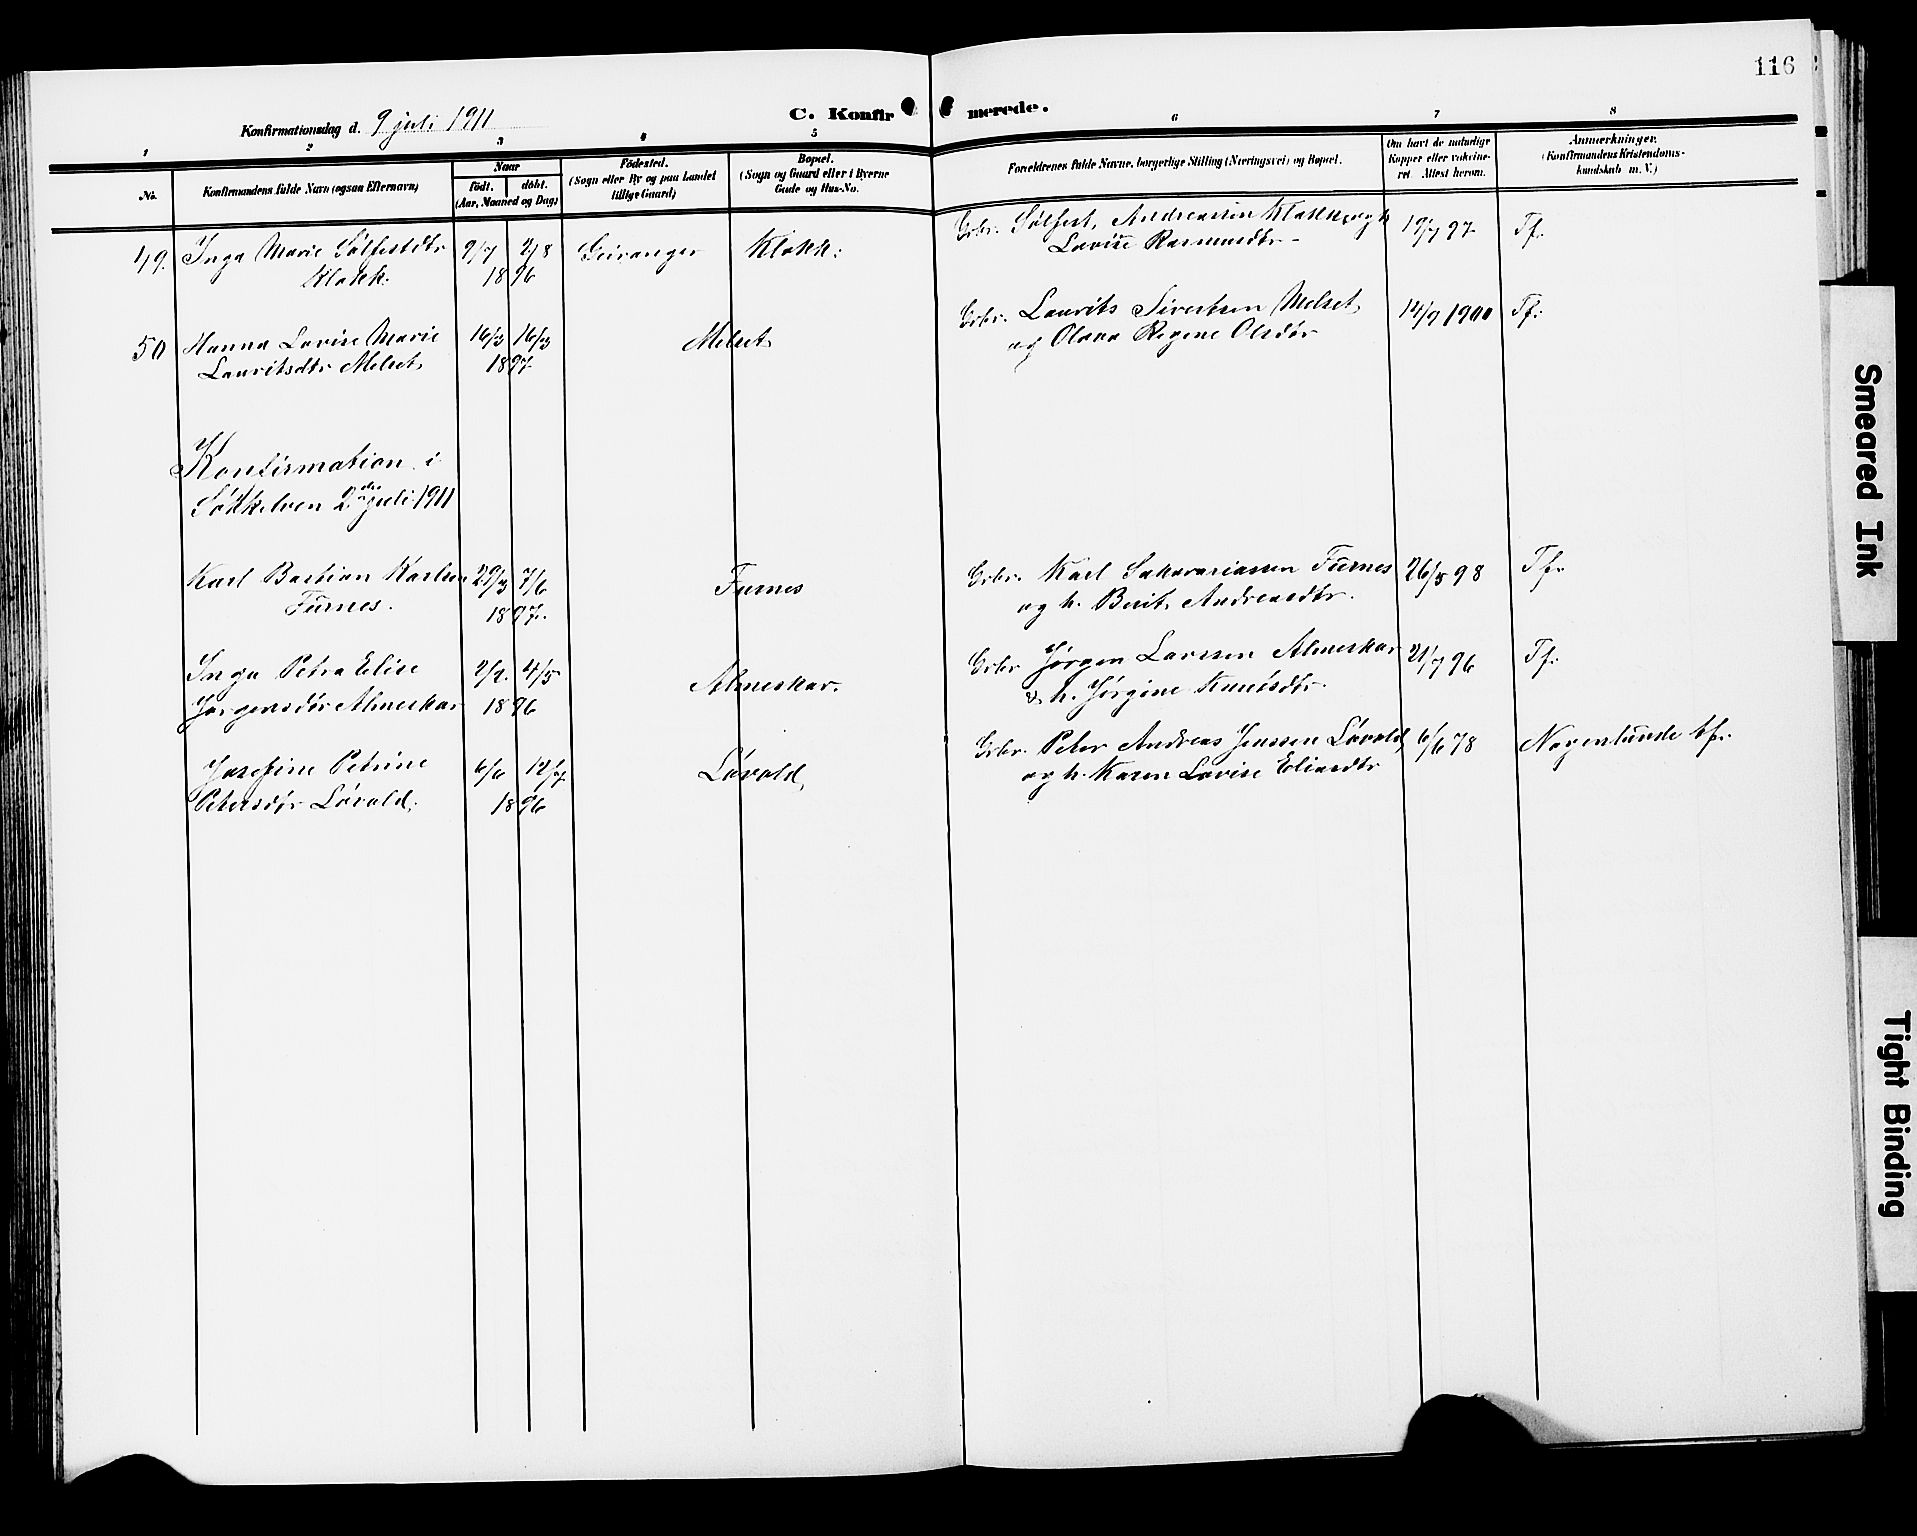 116
Konfirmationsdag d. 9 juli 1911
C. Konfirmerede.
1 2 3 4 5 6 7 8
No.
Konfirmandens fulde Navn (ogsaa Efternavn)
Naar
født. døbt.
(Aar, Maaned og Dag)
Fødested.
(Sogn eller By og paa Landet
tillige Gaard)
Bopæl.
(Sogn og Gaard eller i Byerne
Gade og Hus-No.
Forældrenes fulde Navne, borgerlige Stilling (Næringsvei) og Bopæl.
Om havt de naturlige
Kopper eller vakcine-
ret Attest herom.
Anmerkninger.
(Konfirmandens Kristendoms-
kundskab m. V.)
49. Inga Marie Sølfestdtr 9/7 2/8 Geiranger Klokk:
Klokk. 1896
Grbr. Sølfest Andreassen Klokk og h
Lovise Rasmusdtr 19/7 97 Tf.
50 Hanna Lovise Marie 16/3 16/3 Melset
Lauritsdtr Melset 1897
Grbr. Laurits Sivertsen Melset 14/9 1900 Tf.
og Olava Regine Olsdtr
Konfirmation i
Søkkelven 2den juli 1911
Karl Bastian Karlsen 29/3 7/6 Furnes
Furnes. 1897.
Grbr. Karl Sakariassen Furnes 26/5 98 Tf.
og h. Berit Andreasdtr.
Inga Petra Elise 2/2. 4/5 Almeskar.
Jørgensdtr Almeskar 1896
Grbr Jørgen Larssen Almeskar 21/7 96 Tf.
& h. Jørgine Knutsdtr.
Josefine Petrine 6/6 12/7 Løvold
Petersdtr Løvold. 1896
Grbr. Peter Andreas Jenssen Løvold 6/6 78 Nogenlunde tf.
og h. Karen Lovise Eliasdtr
Smeared Ink
Tight Binding